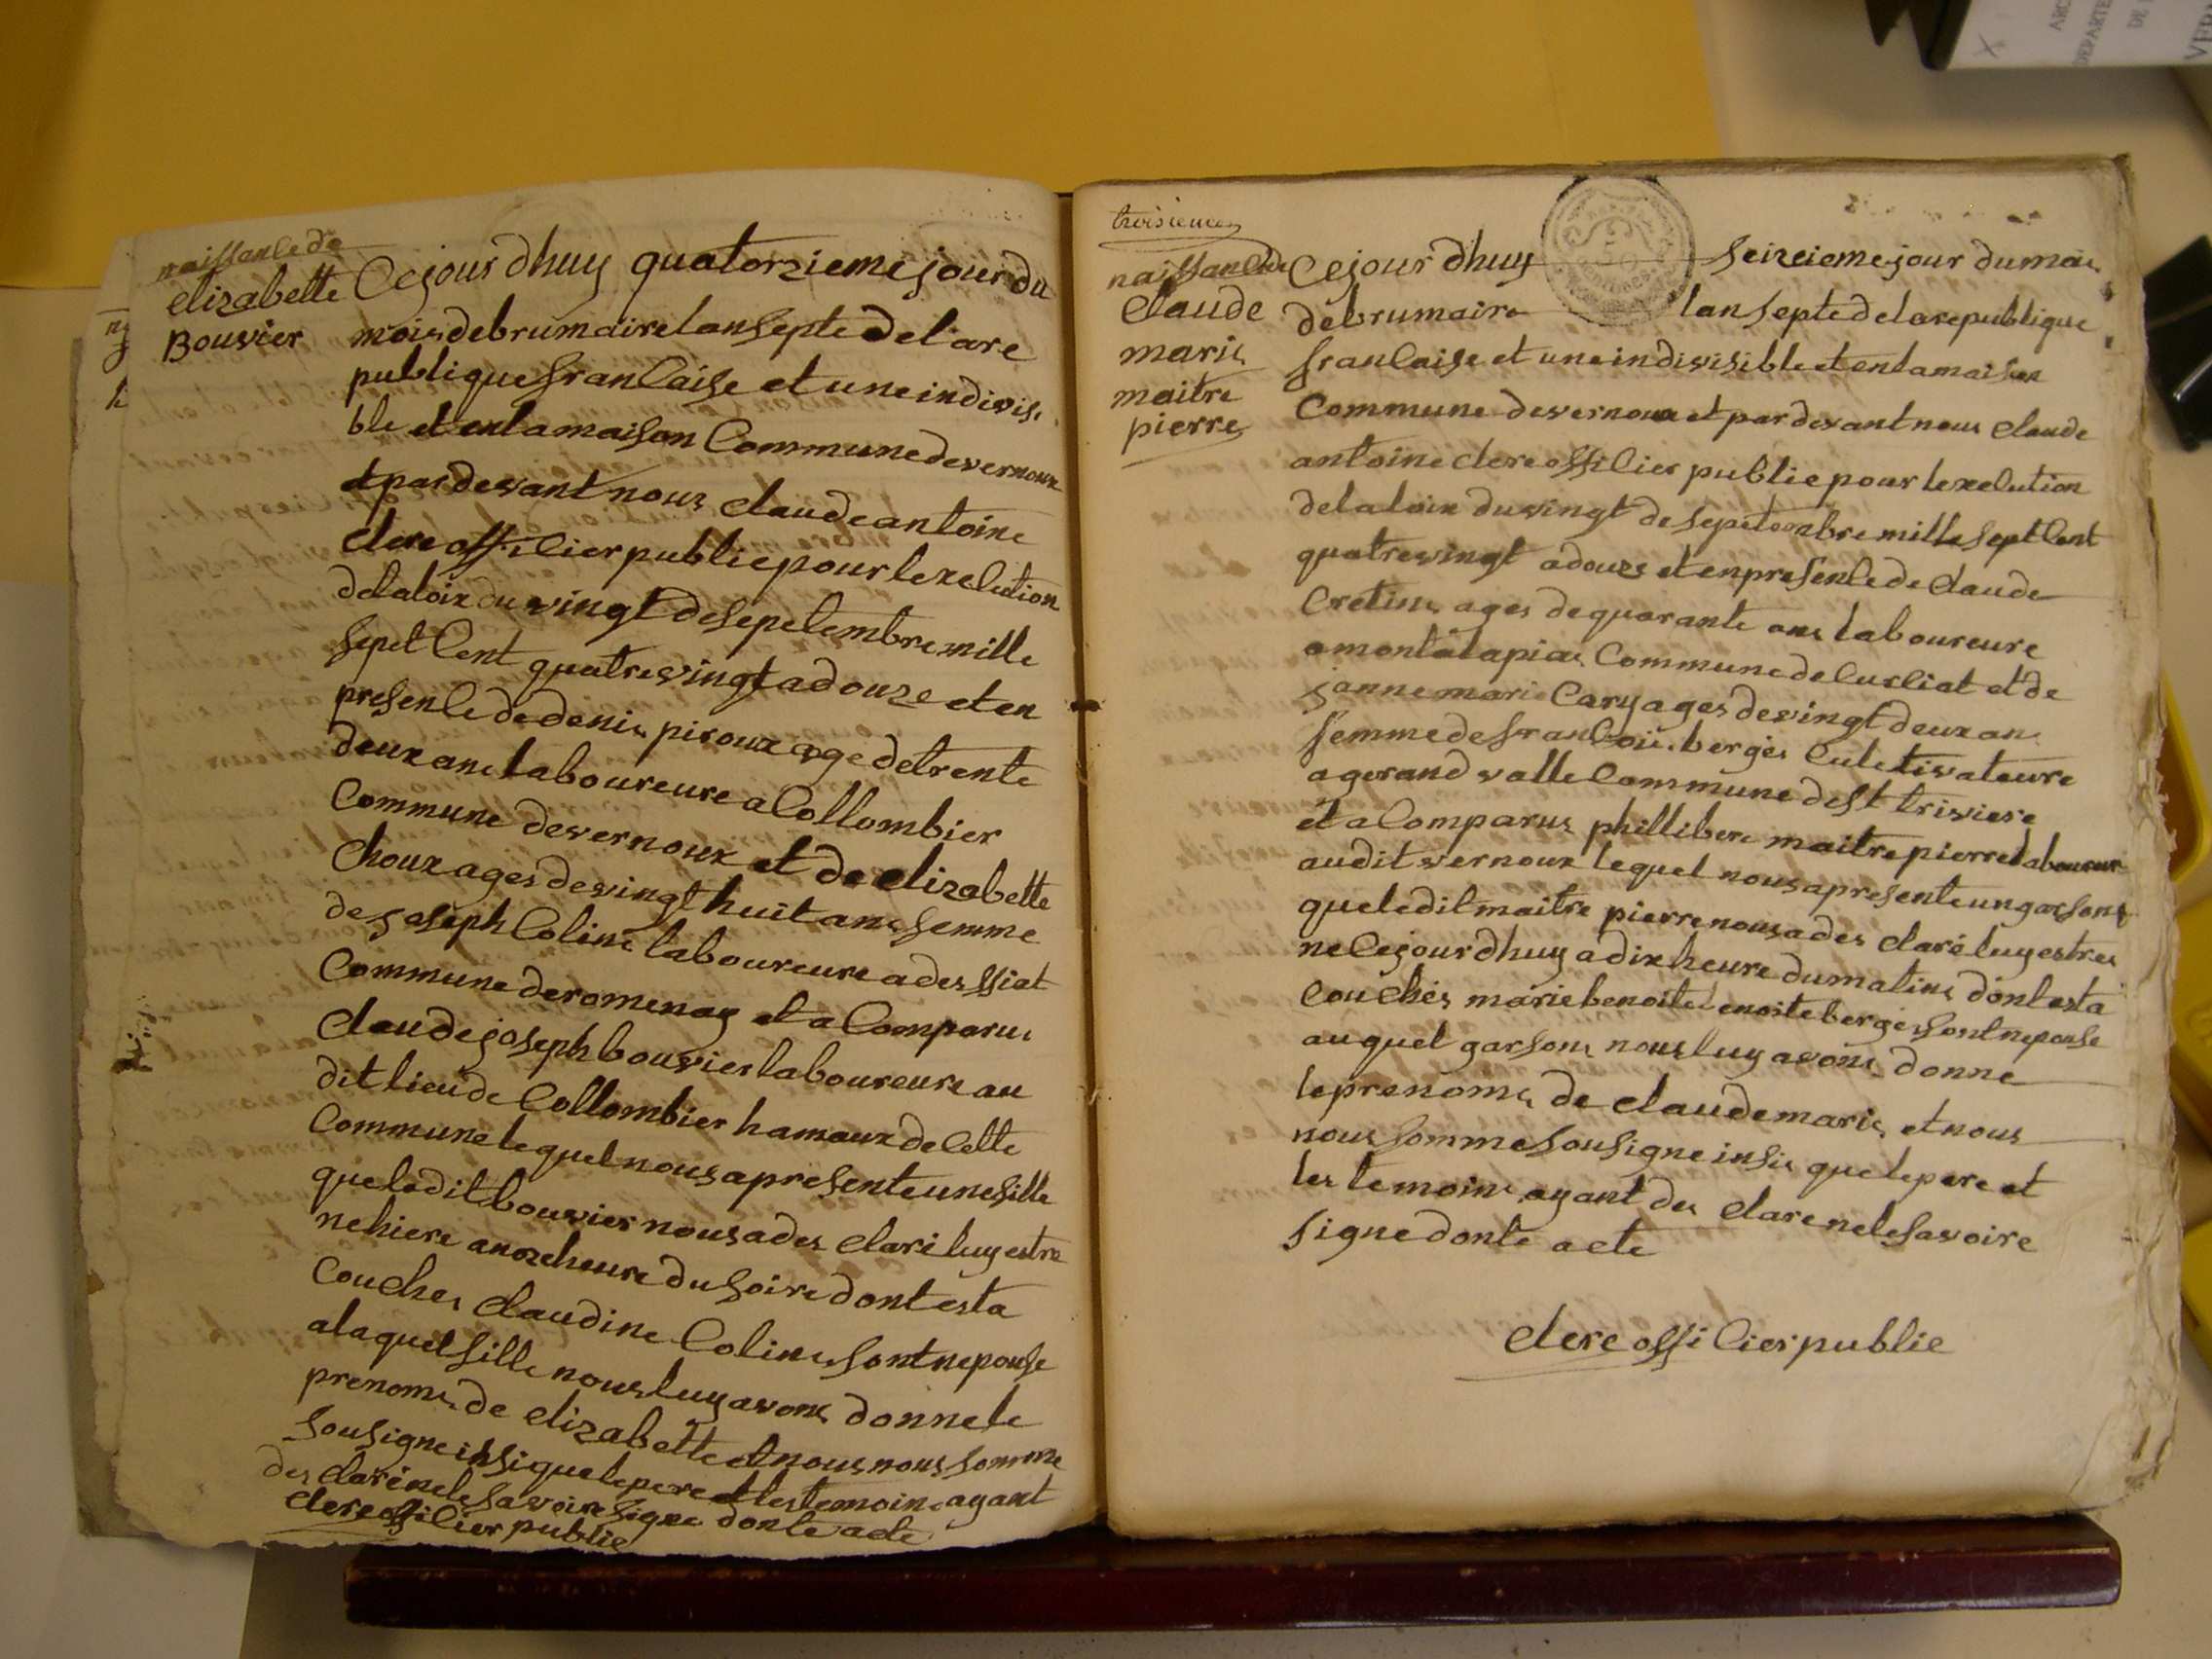 naissance de
elizabette
Bouvier
Cejour dhuy quatorzieme jour du
mois de brumaire lan septe de la re
publique francaise et une indivisi
ble et en la maison Commune de vernoux
et par devant nous claude antoine
clere officier public pour lexecution
de la loix du vingt de sepetembre mille
sepet cent quatre vingt a douze et en
presence de denis piroux age de trente
deux ans laboureure a Collombier
Commune de vernoux et de elizabette
Choux ages de vingt huit ans femme
de joseph Coline laboureure a des ssiat
Commune de romenay et a Comparus
claude joseph bouvier laboureure au
dit lieu de Collombier hamaux de Cette
Commune lequel nous a presente une fille
que ledit bouvier nous a des clare luy estre
ne hiere a onze heure du soire dont esta
Couches claudine Coline sont nepouse
alaquel fille nous luy avons donne le
prenoms de elizabette et nous nous somme
sousigne insi que le pere et les temoins ayant
des clare ne le savoire signe donte acte
clere officier public
troisieme
naissance de
claude
marie
maitre
pierre
Cejour dhuy seizieme jour du mois
de brumaire lan septe de la republique
francaise et une indivisible et en la maison
Commune de vernoux et par devant nous claude
antoine clere officier public pour lexecution
de la loix du vingt de sepetembre mille sept Cent
quatre vingt a douze et en presence de claude
Cretin ages de quarante ans laboureure
a montalapias Commune de Curciat et de
janne marie Cary ages de vingt deux ans
femme de francois berger Culetivateure
a gerand valle Commune de st triviere
et a Comparus philliber maitre pierre laboureur
audit vernoux lequel nous a presente un garsons
que ledit maitre pierre nous a des claré luy estre
ne Cejour dhuy a dix heure du matin dont esta
Couches marie benoite benoite berger sont nepouse
auquel garsons nous luy avons donne
le prenoms de claude marie et nous
nous somme sousigne insi que le pere et
les temoins ayant des clare ne le savoire
signe donte acte
clere officier public
ARC
DEPARTE
DE
VER